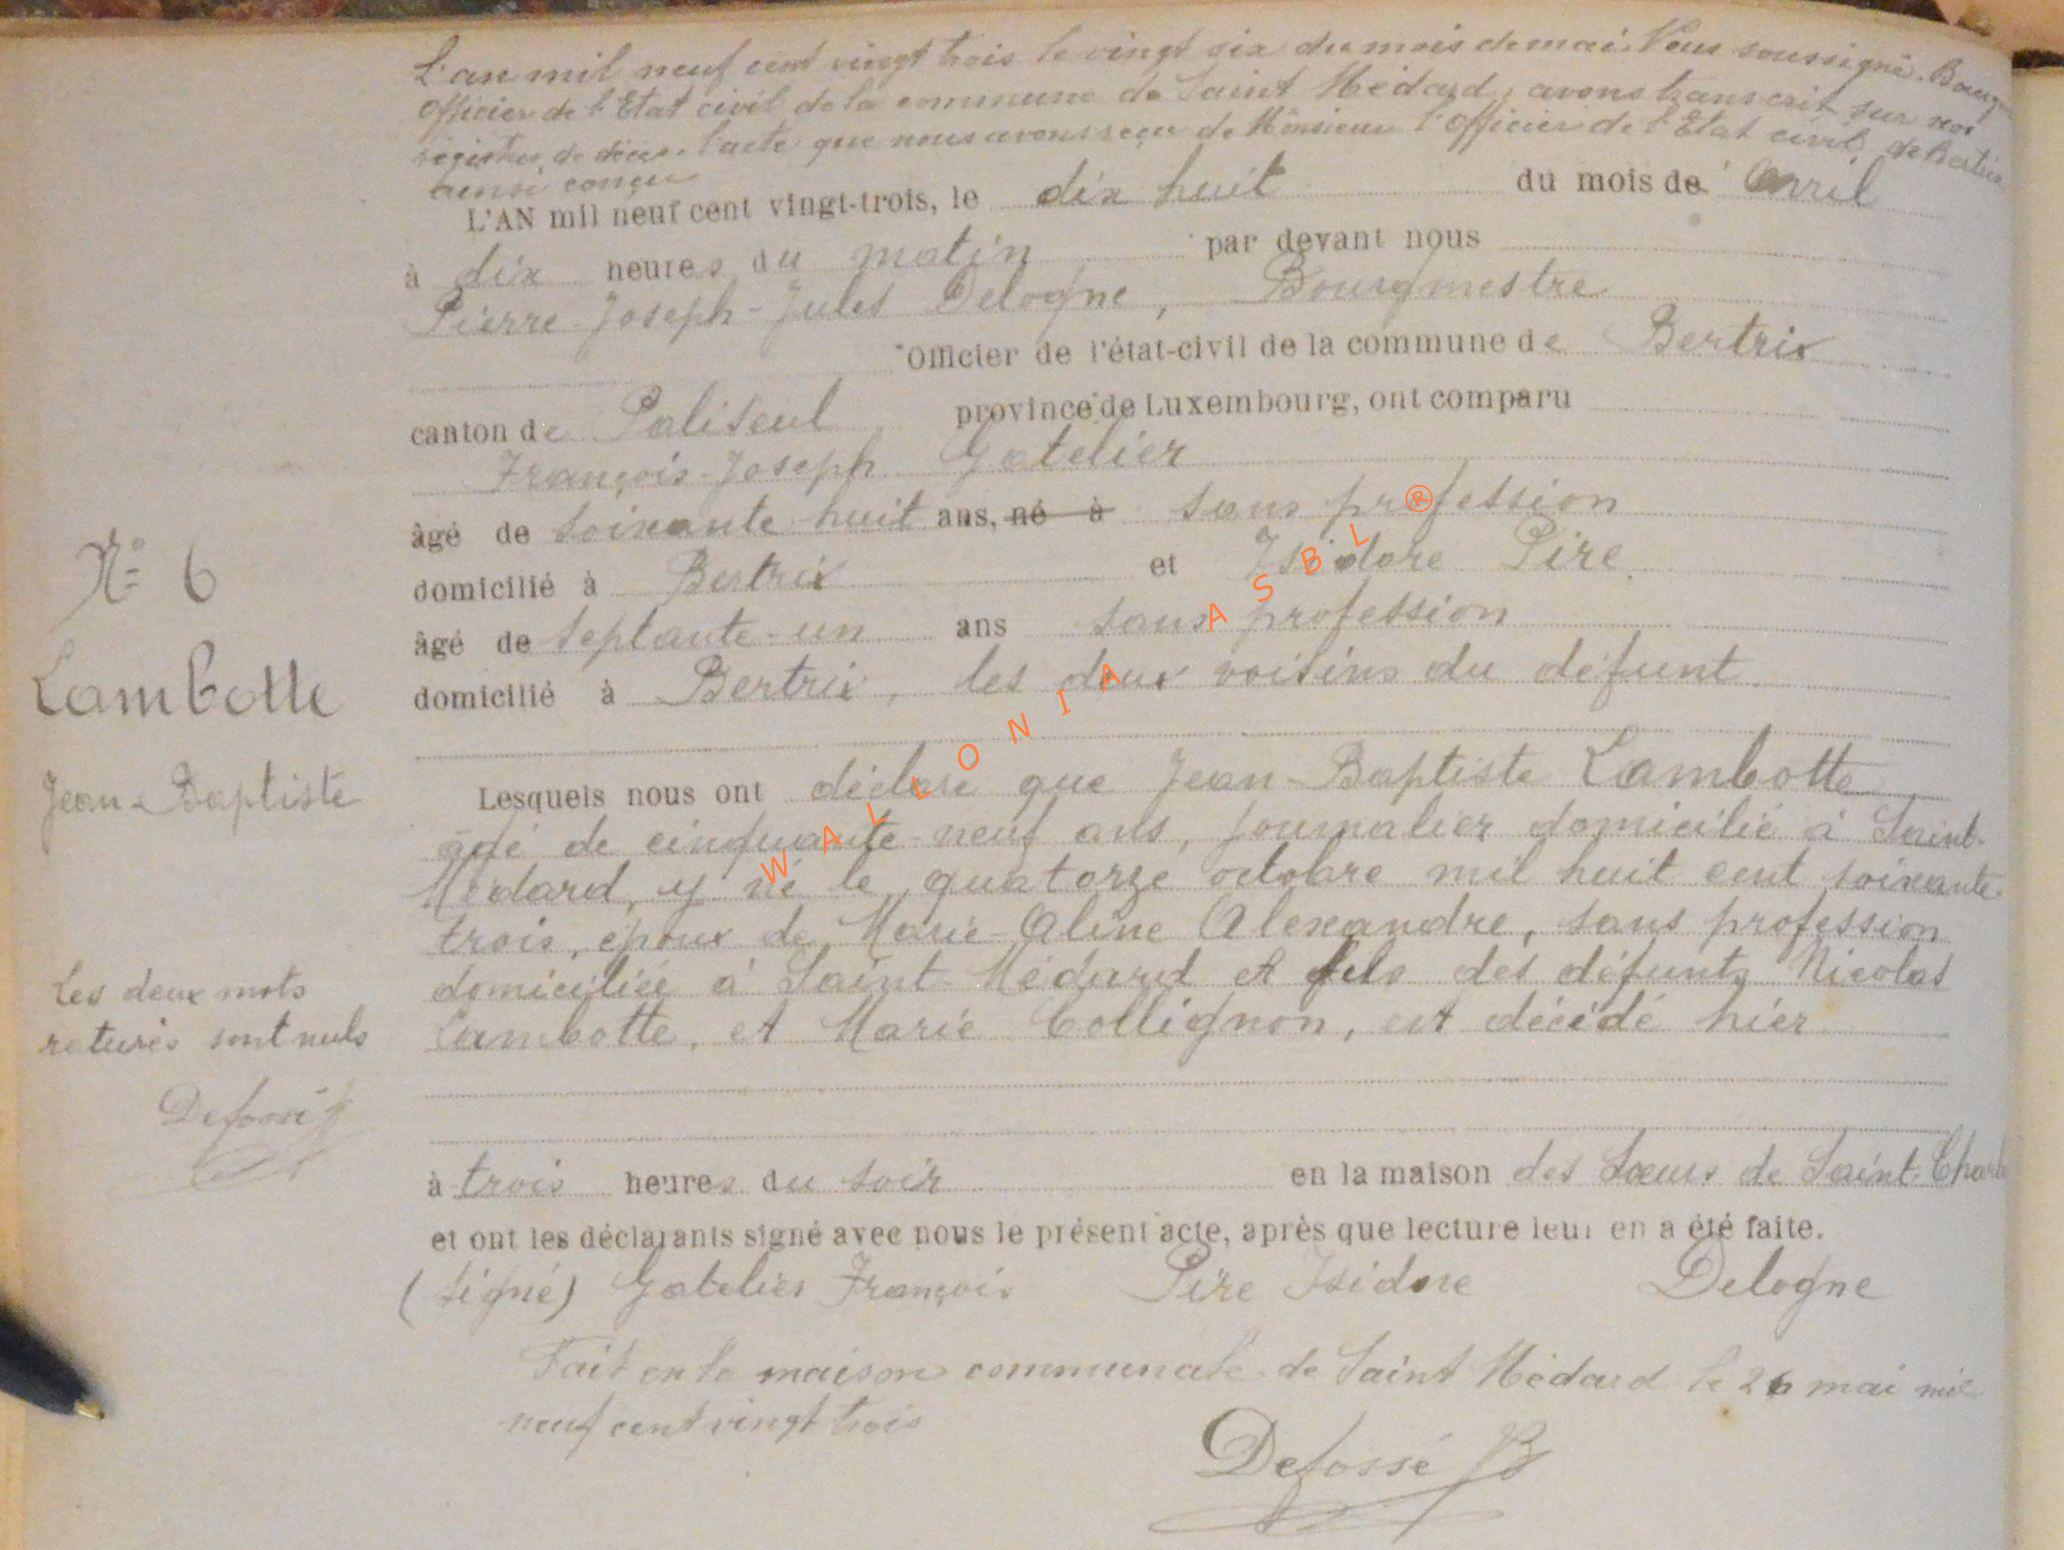 L'an mil neuf cent vingt trois le vingt six du mois de mai. Nous soussigné. Bourgm
Officier de l'Etat civil de la commune de Saint Médard, avons transcrit sur nos
registres de décès. l'acte que nous avons reçu de Monsieur l'Officier de l'Etat civil de Bertrix
ainsi conçu
L'AN mil neuf cent vingt-trois, le dix huit du mois de Avril
à dix heures du matin par devant nous
Pierre-Joseph-Jules Delogne, Bourgmestre
Officier de l'état-civil de la commune de Bertrix
canton de Paliseul province de Luxembourg, ont comparu
François-Joseph Gatelier
âgé de soixante huit ans, né à sans profession
domicilié à Bertrix et Isidore Pire
âgé de septante-un ans sans profession
domicilié à Bertrix, les deux voisins du défunt
Lesquels nous ont déclaré que Jean-Baptiste Lambotte
âgé de cinquante-neuf ans, journalier domicilié à Saint-
Médard, y né le quatorze octobre mil huit cent soixante-
trois, époux de Marie-Aline Alexandre, sans profession
domiciliée à Saint-Médard et fils des défunts Nicolas
Lambotte, et Marie Collignon, est décédé hier
à trois heures du soir en la maison des Sœurs de Saint-Charles
et ont les déclarants signé avec nous le présent acte, après que lecture leur en a été faite.
(signé) Gatelier François Pire Isidore Delogne
Fait en la maison communale de Saint Médard le 26 mai mil
neuf cent vingt trois
Defossé B
N° 6
Lambotte
Jean-Baptiste
Les deux mots
raturés sont nuls
Defossé
WALLONIA ASBL ®